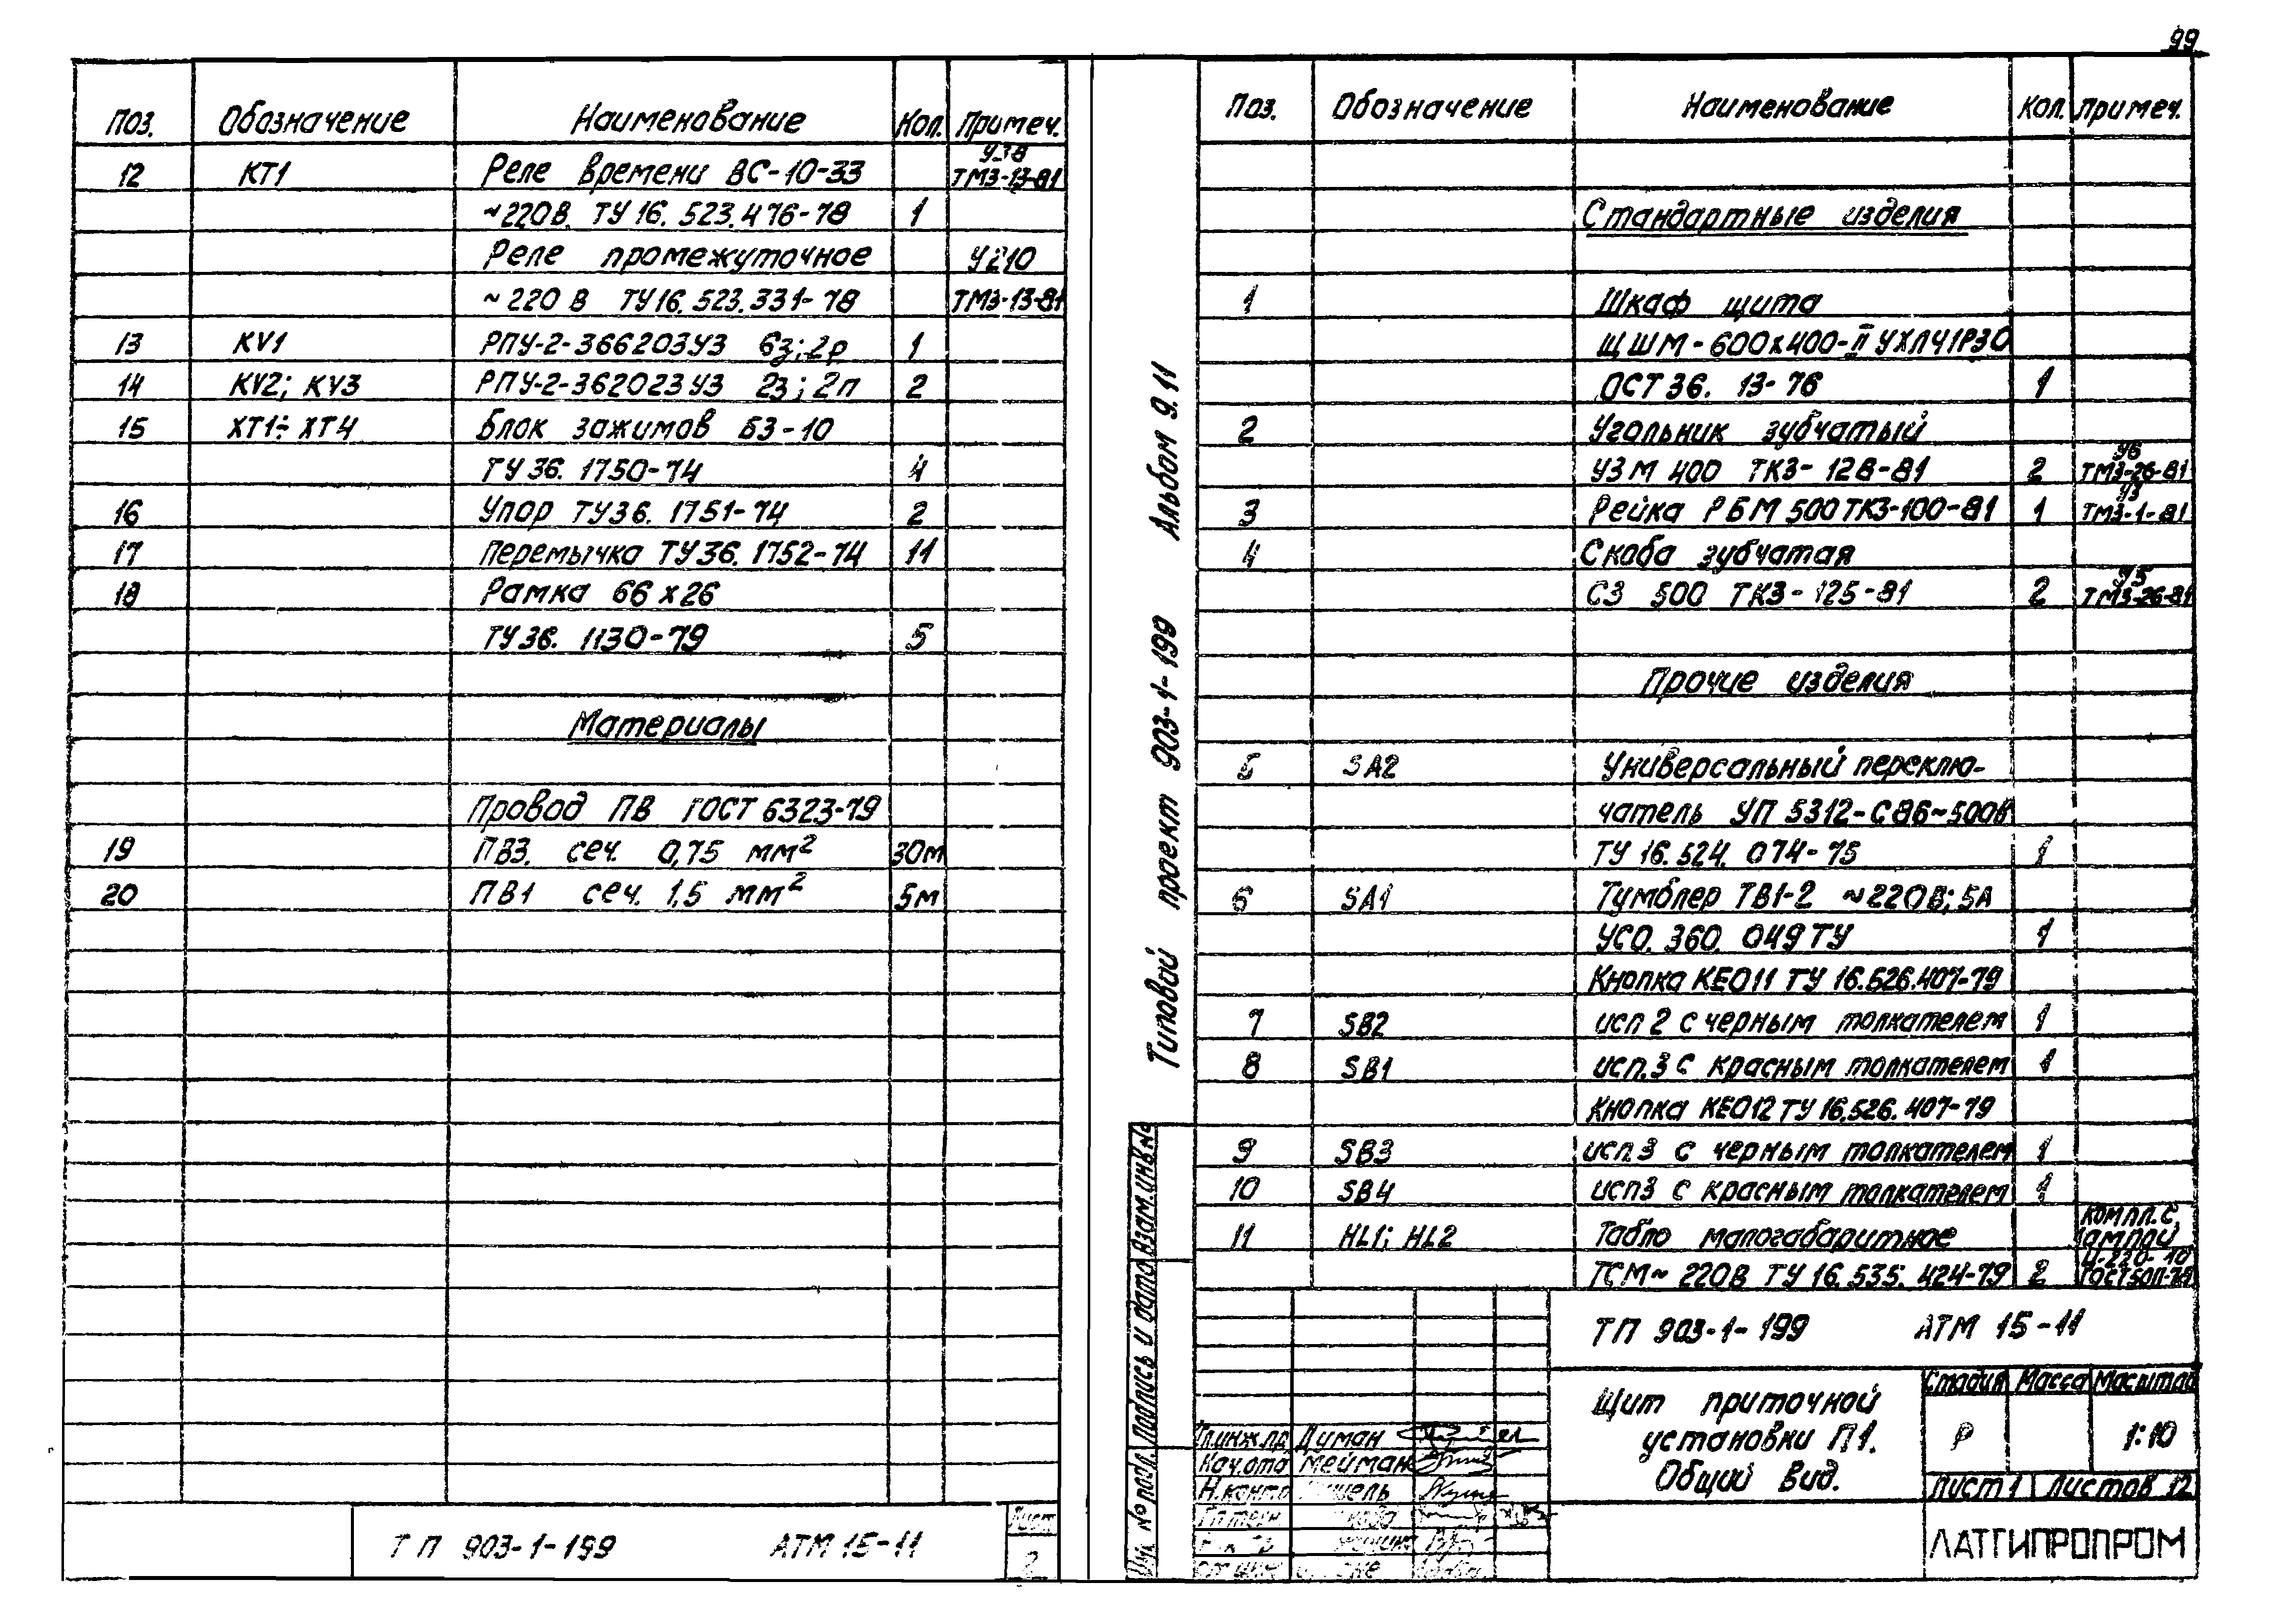 99
Поз. Обозначение Наименование Кол. Примеч.
12 КТ1 Реле времени ВС-10-33 ТМ3-13-81
~220В. ТУ 16. 523.476-78 1
Реле промежуточное У210
~220 В ТУ16.523.331-78 ТМ3-13-81
13 KV1 РПУ-2-366203У3 6з;2р 1
14 KV2; KV3 РПУ-2-362023У3 2з; 2п 2
15 ХТ1÷ХТ4 Блок зажимов БЗ-10
ТУ 36. 1750-74 4
16 Упор ТУ36. 1751-74 2
17 Перемычка ТУ36. 1752-74 11
18 Рамка 66х26
ТУ 36. 1130-79 5
Материалы
Провод ПВ ГОСТ 6323-79
19 ПВ3. сеч. 0,75 мм² 30м
20 ПВ1 сеч. 1,5 мм² 5м
ТП 903-1-199 АТМ 15-11
Лист
2
Типовой проект 903-1-199 Альбом 9.11
Поз. Обозначение Наименование Кол. Примеч.
Стандартные изделия
1 Шкаф щита
ЩШМ-600х400-II УХЛ4 IР30
ОСТ 36. 13-76 1
2 Угольник зубчатый У6
УЗМ 400 ТК3-128-81 2 ТМ3-26-81
У3
3 Рейка РБМ 500 ТК3-100-81 1 ТМ3-1-81
4 Скоба зубчатая У5
СЗ 500 ТК3-125-81 2 ТМ3-26-81
Прочие изделия
5 SA2 Универсальный переклю-
чатель УП 5312-С86~500В
ТУ 16.524. 074-75 1
6 SA1 Тумблер ТВ1-2 ~220В; 5А
УСО. 360. 049 ТУ 1
Кнопка КЕ011 ТУ 16.526.407-79
7 SB2 исп 2 с черным толкателем 1
8 SB1 исп.3 с красным толкателем 1
Кнопка КЕ012 ТУ 16.526. 407-79
9 SB3 исп.3 с черным толкателем 1
10 SB4 исп3 с красным толкателем 1
11 HL1; HL2 Табло малогабаритное компл. с
лампой
Ц-220-10
ТСМ~ 220В ТУ 16.535. 424-79 2 ГОСТ5011-
Инв. № подл. Подпись и дата Взам.инв.№
ТП 903-1-199 АТМ 15-11
Щит приточной
установки П1.
Общий вид.
Стадия Масса Масштаб
Р 1:10
Лист 1 Листов 12
ЛАТГИПРОПРОМ
Гл.инж.пр. Думан
Нач.отд Мейман
Н.контр